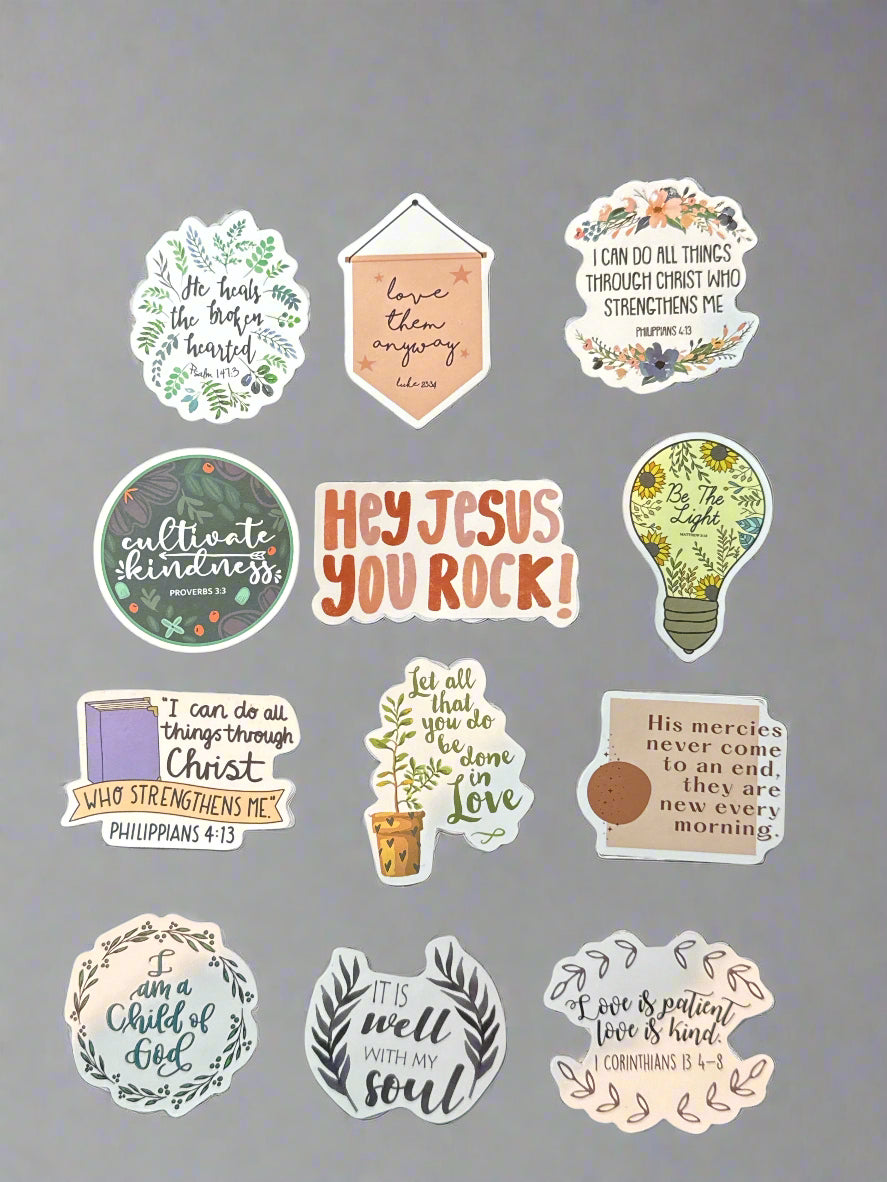 He heals
the broken
hearted
Psalm 147:3
love
them
anyway
luke 23:34
I CAN DO ALL THINGS
THROUGH CHRIST WHO
STRENGTHENS ME
PHILIPPIANS 4:13
cultivate
kindness
PROVERBS 3:3
HEY JESUS
YOU ROCK!
Be The
Light
"I can do all
things through
Christ
WHO STRENGTHENS ME."
PHILIPPIANS 4:13
Let all
that
you do
be
done
in
Love
His mercies
never come
to an end,
they are
new every
morning.
I
am a
Child of
God
IT IS
well
WITH MY
soul
Love is patient
love is kind.
1 CORINTHIANS 13 4-8